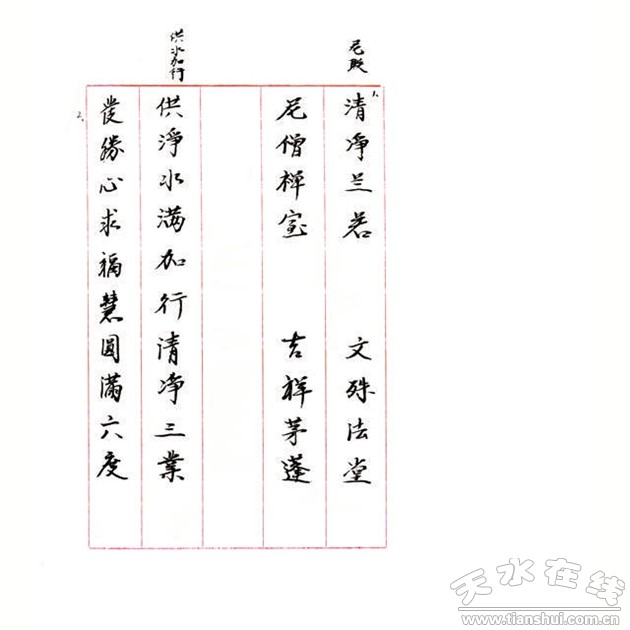 尼殿
1、
清净兰若 文殊法堂
尼僧禅室 吉祥茅蓬
供水加行
供淨水满加行清净三業
2、
發勝心求福慧圆满六度
天水在线
www.tianshui.com.cn